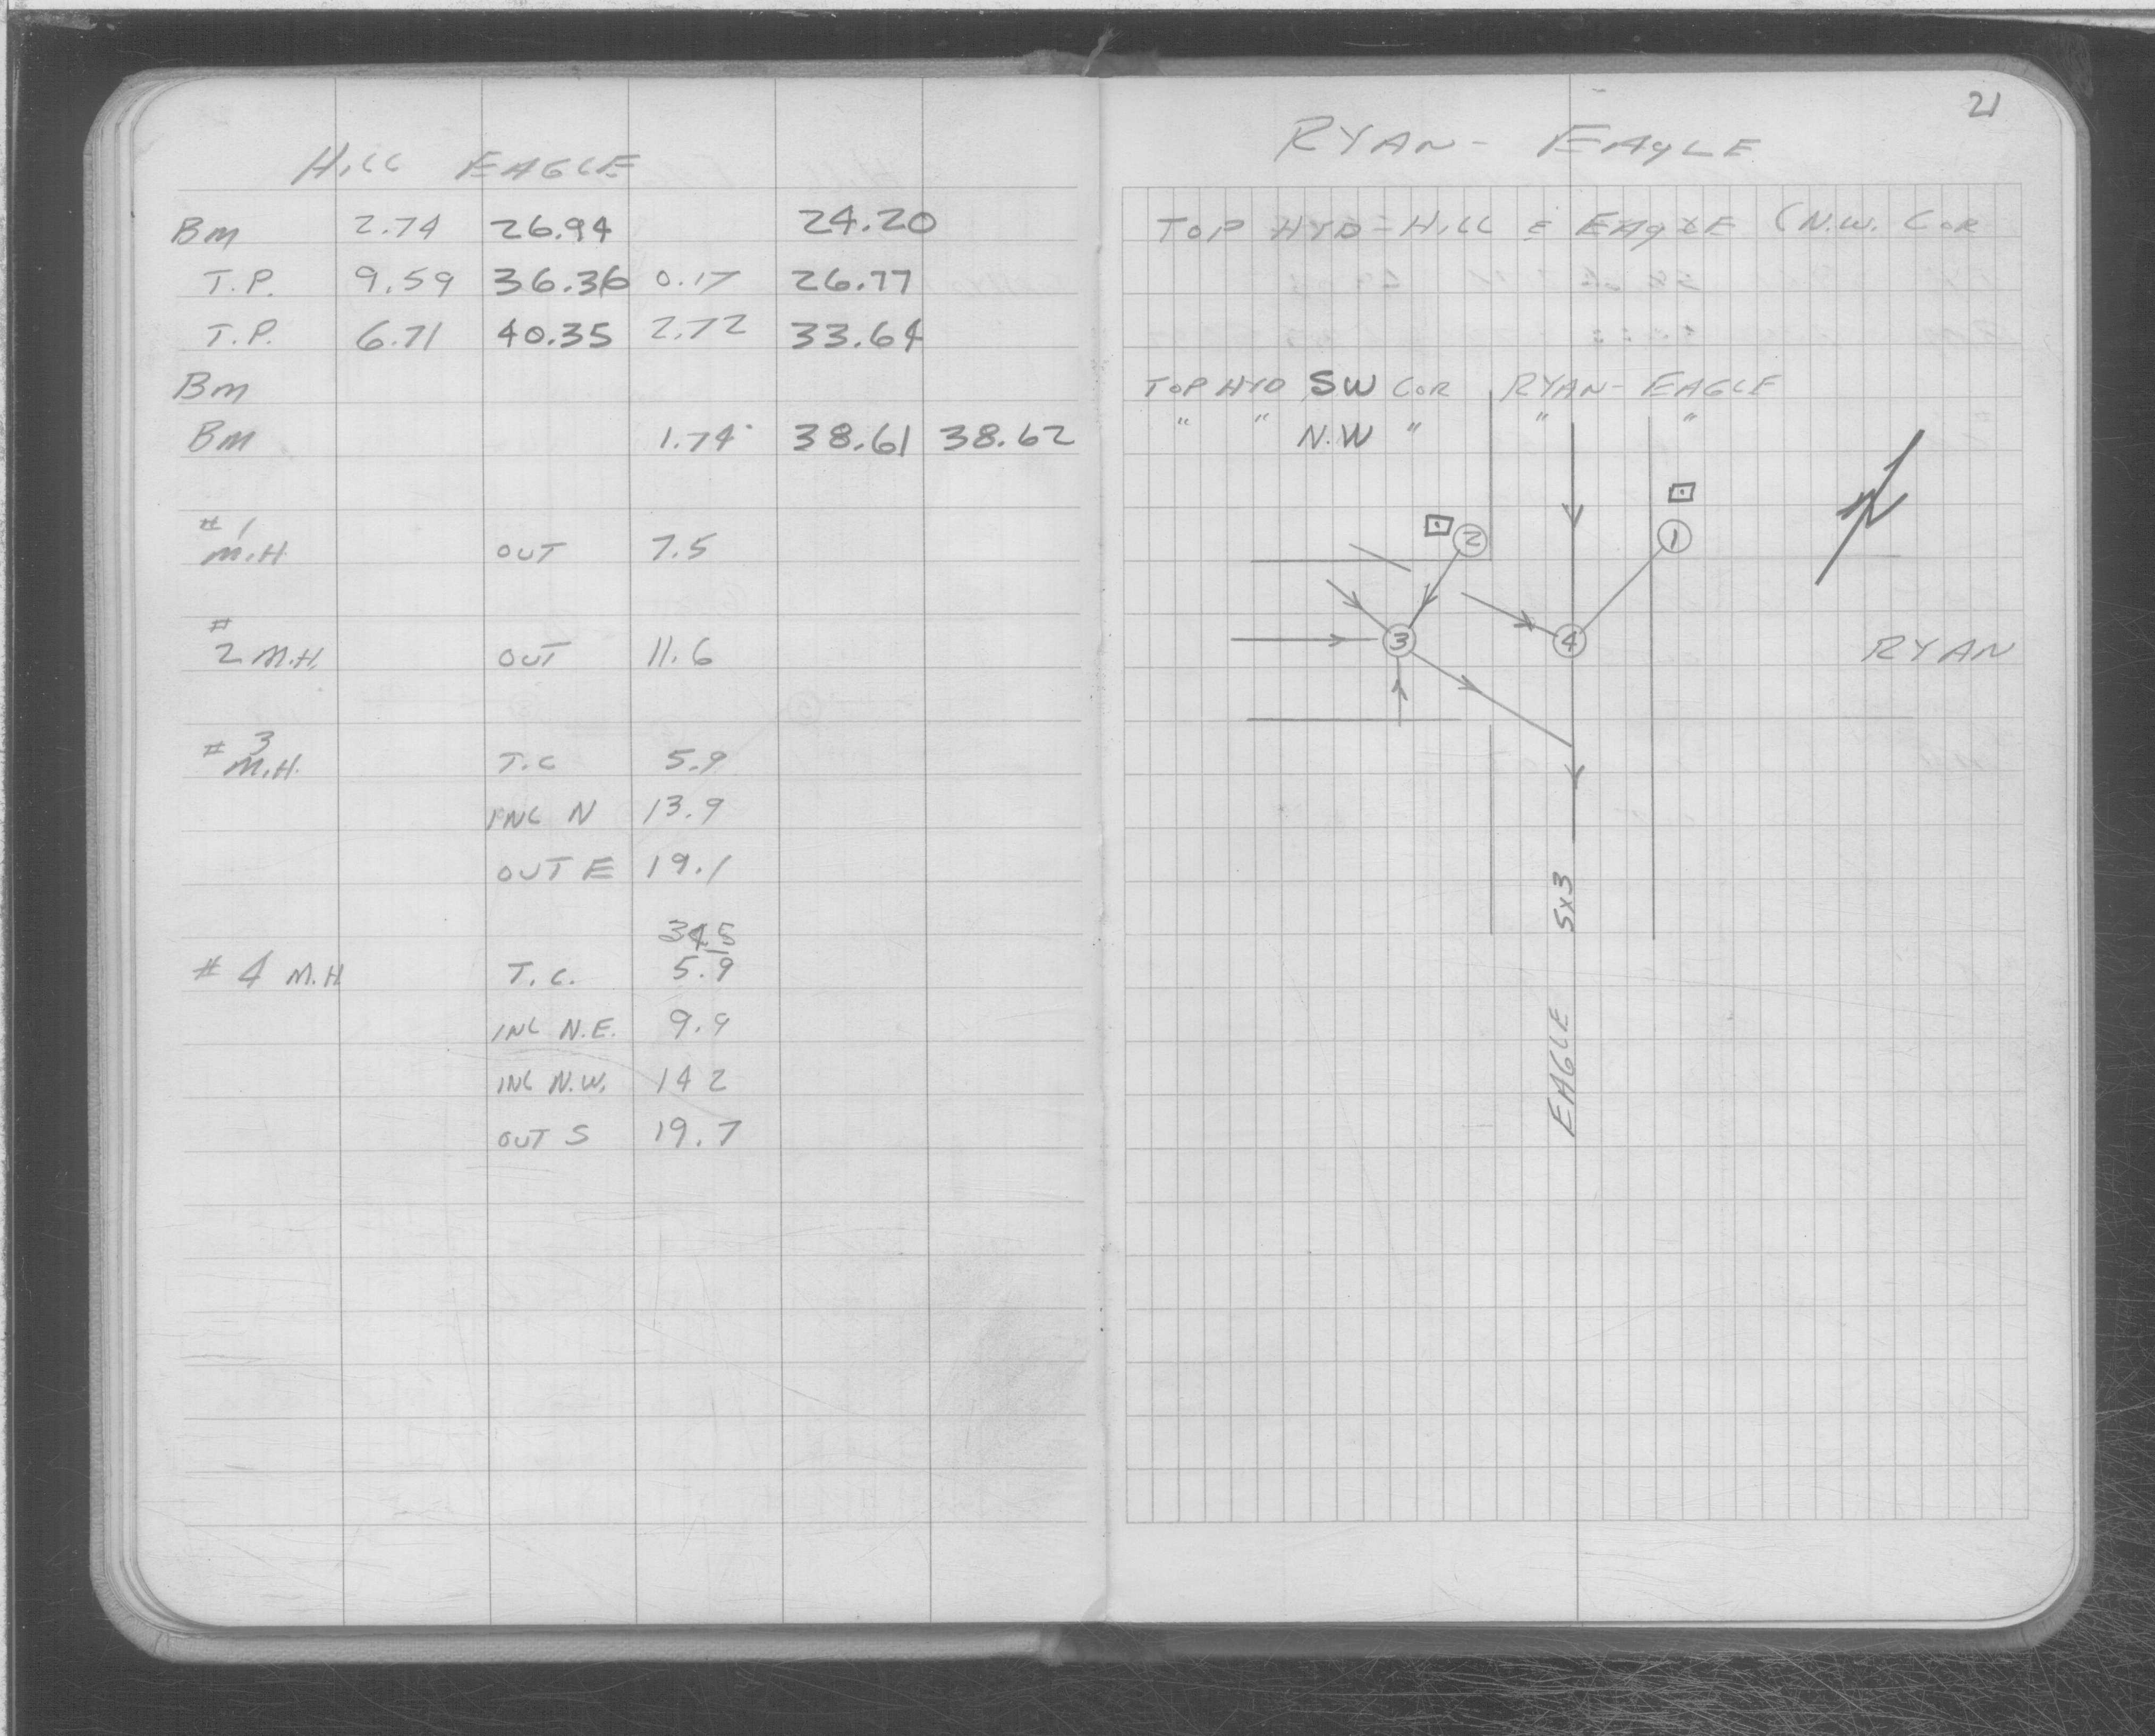 HILL EAGLE
BM 2.74 26.94 24.20
T.P. 9.59 36.36 0.17 26.77
T.P. 6.71 40.35 2.72 33.64
BM
BM 1.74 38.61 38.62
#1 M.H. OUT 7.5
#2 M.H. OUT 11.6
#3 M.H. T.C 5.9
INC N 13.9
OUT E 19.1
34.5
#4 M.H T.C. 5.9
INC N.E. 9.9
INC N.W. 14 2
OUT S 19.7
21
RYAN - EAGLE
TOP HYD - HILL & EAGLE (N.W. COR
TOP HYD SW COR RYAN - EAGLE
" " N.W " " "
2
1
3
4
N
RYAN
EAGLE 5x3